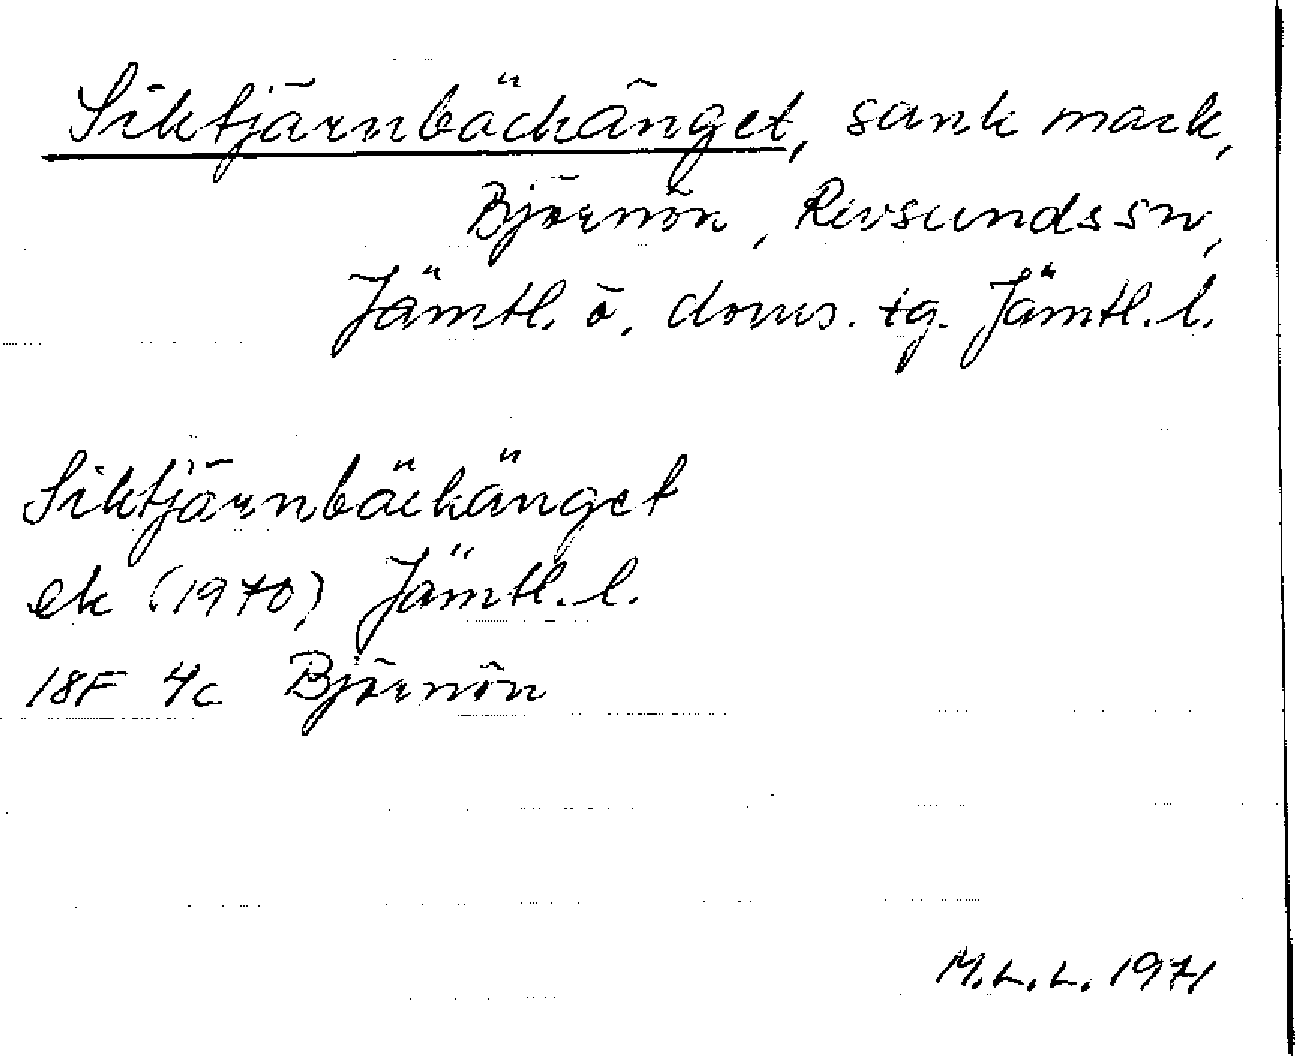 Siktjärnbäckänget, sank mark,
Björnön, Revsunds sn,
Jämtl. ö. doms. tg. Jämtl. l.
Siktjärnbäckänget
ek (1970) Jämtl. l.
18F 4c Björnön
M.L.L. 1971